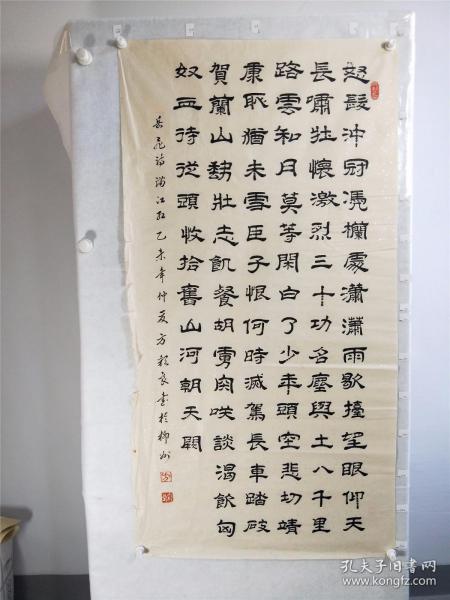 怒髮沖冠憑欄處瀟瀟雨歇擡望眼仰天
長嘯壯懷激烈三十功名塵與土八千里
路雲和月莫等閑白了少年頭空悲切靖
康耻猶未雪臣子恨何時滅駕長車踏破
賀蘭山缺壯志飢餐胡虜肉咲談渴飲匈
奴血待從頭收拾舊山河朝天闕
岳飛詩滿江紅乙未年仲夏方良書於柳州
孔夫子旧书网
www.kongfz.com